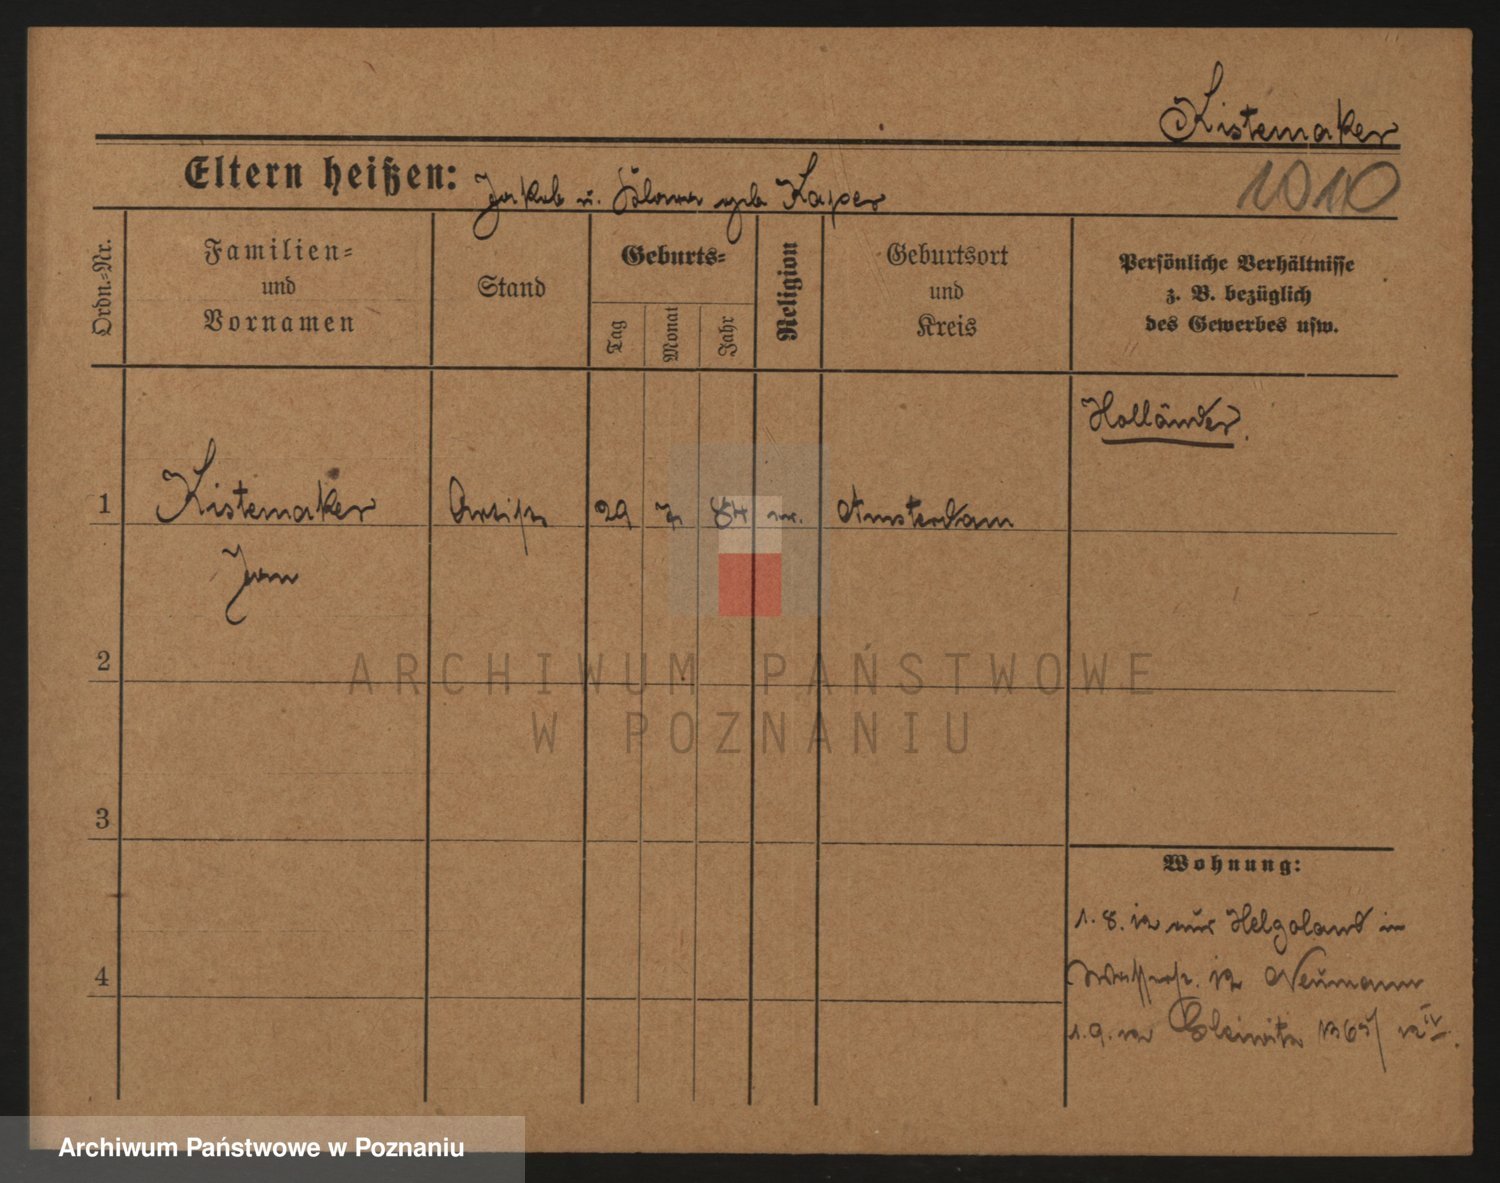 Kistemaker
Eltern heißen: Jakob u. geb Kasper
1010
Ordn.=Nr.
Familien=
und
Vornamen
Stand
Geburts=
Tag
Monat
Jahr
Religion
Geburtsort
und
Kreis
Persönliche Verhältnisse
z. B. bezüglich
des Gewerbes usw.
Holländer.
1 Kistemaker Artist 29 7 84 Amsterdam
Jan
2
3
4
Wohnung:
1. 8. 12 aus Helgoland in
12 Neumann
1. 9. 12 Gleiwitz 1365/12 IV.
ARCHIWUM PAŃSTWOWE
W POZNANIU
Archiwum Państwowe w Poznaniu